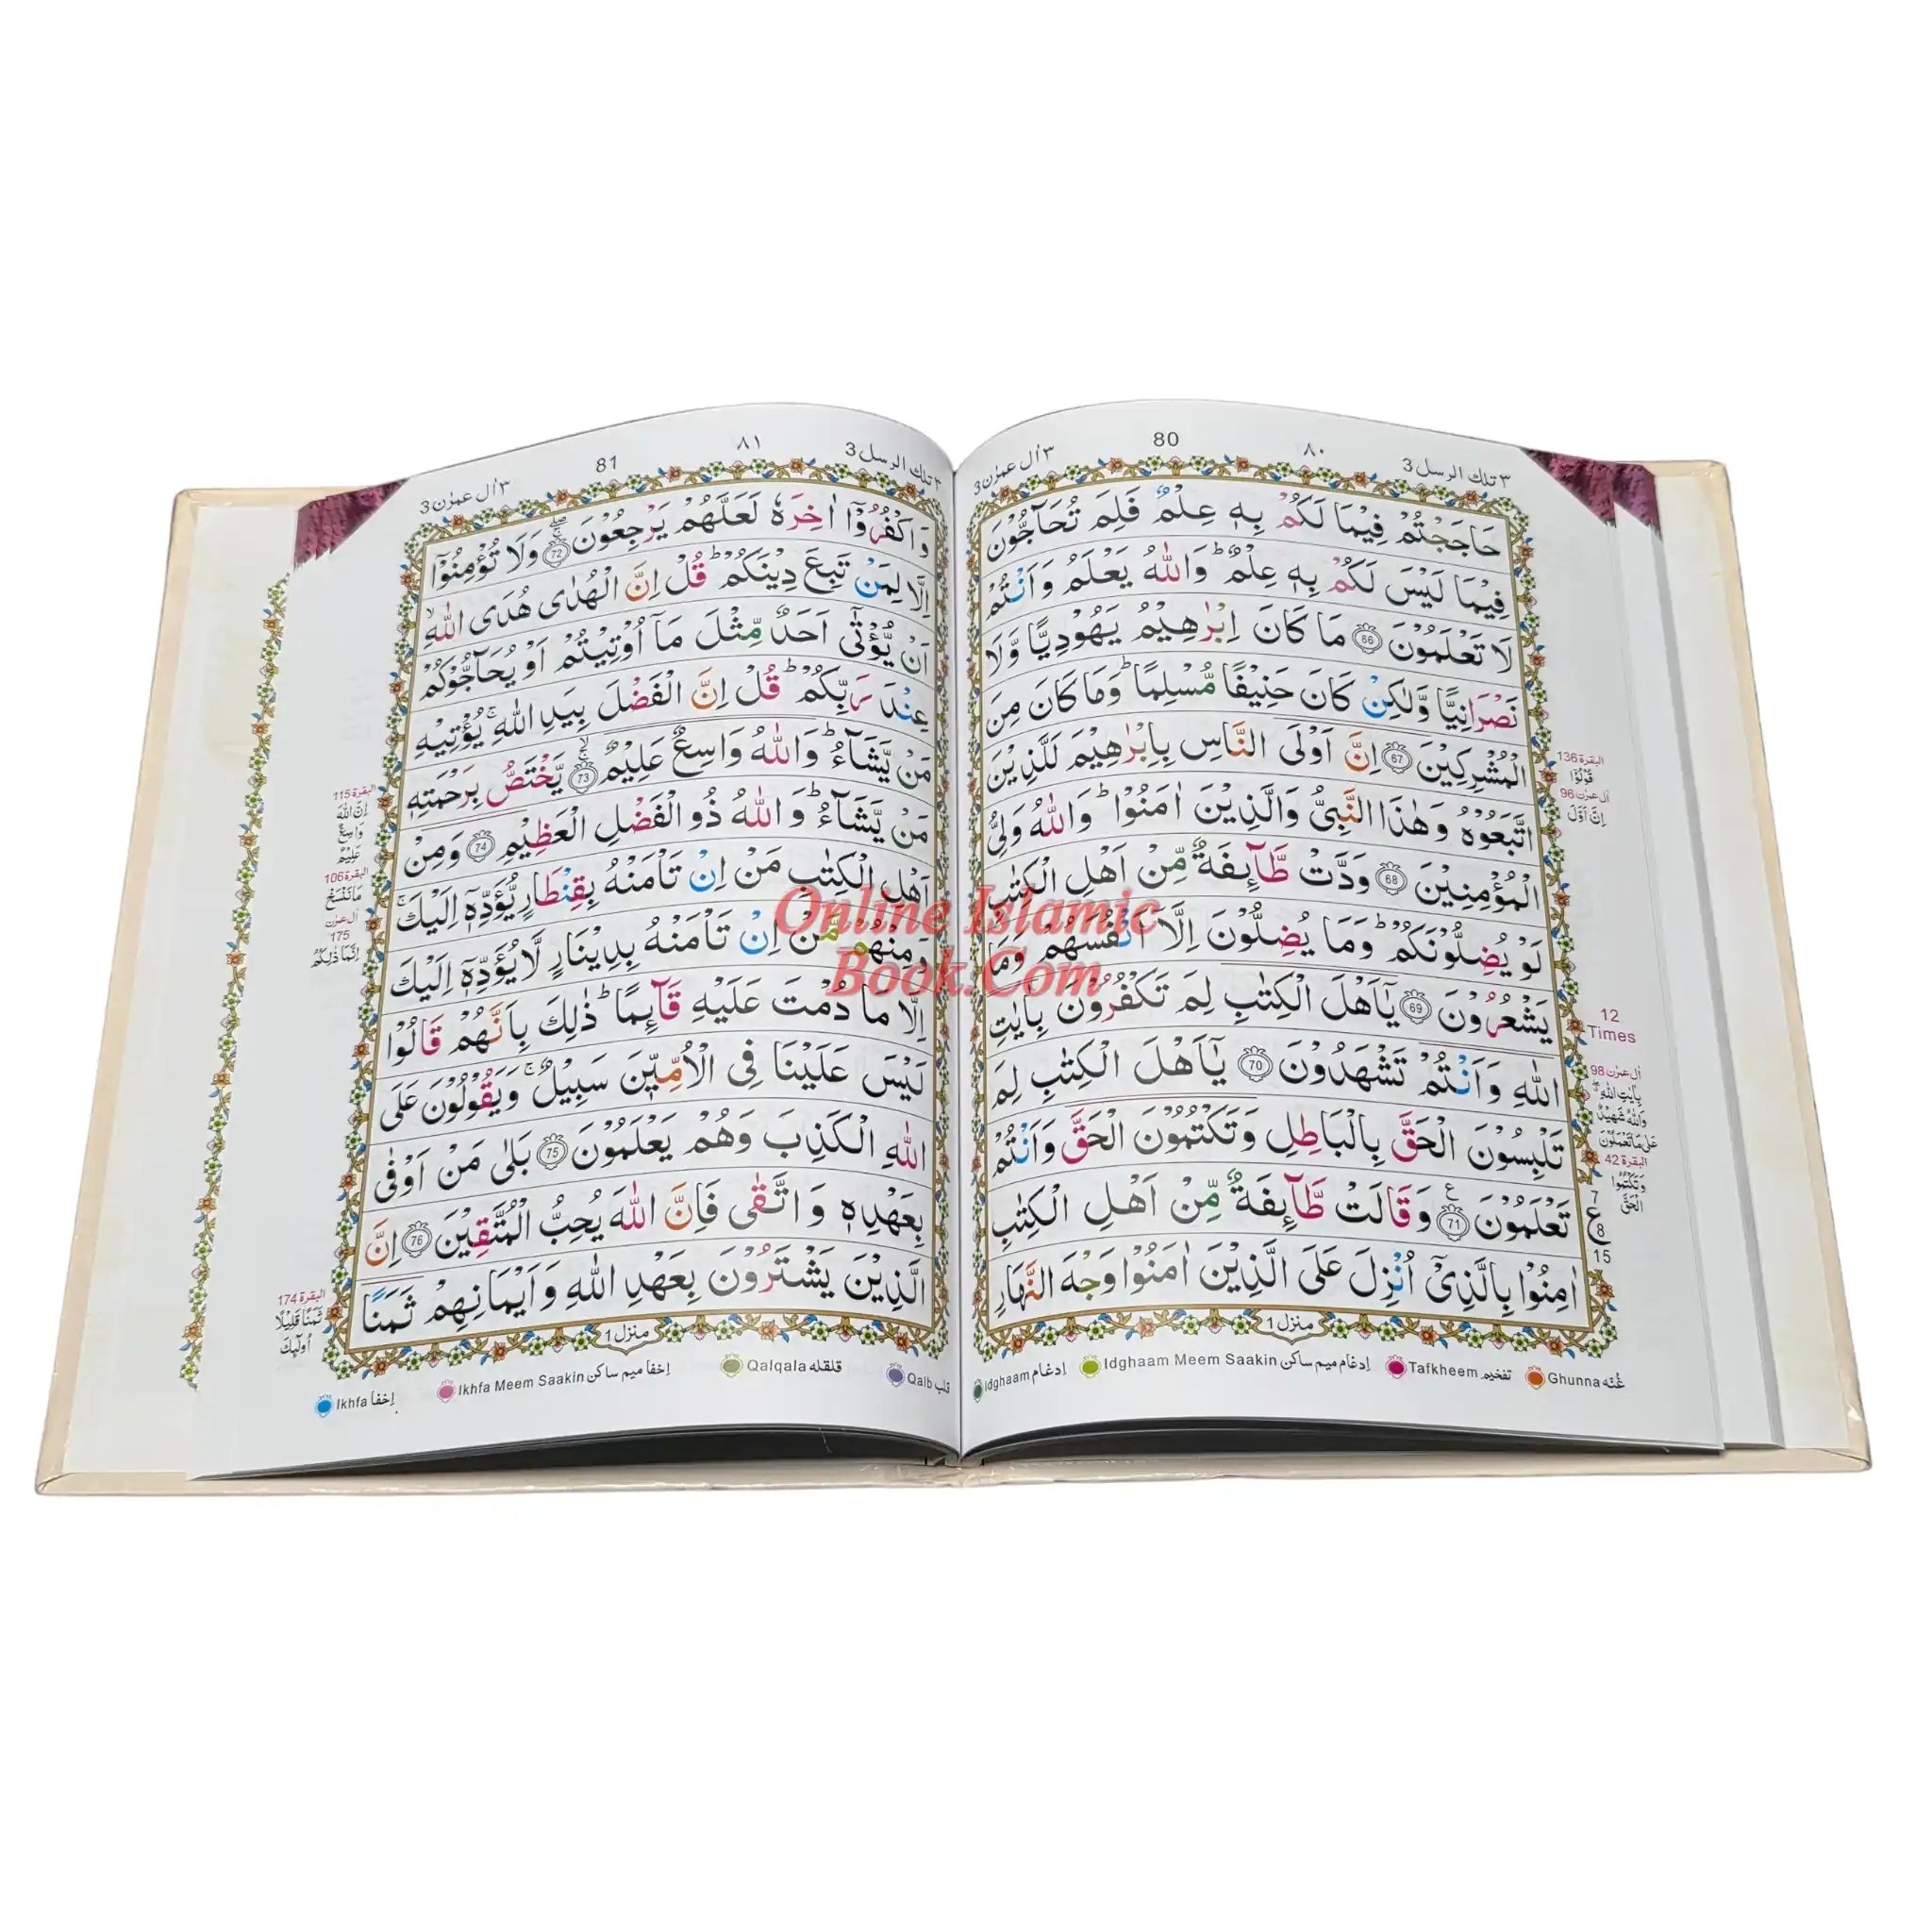 ٣ تلك الرسل 3
٨٠
80
٣ اٰل عمرٰن 3
حَاجَجْتُمْ فِيْمَا لَكُمْ بِهٖ عِلْمٌ فَلِمَ تُحَآجُّوْنَ
فِيْمَا لَيْسَ لَكُمْ بِهٖ عِلْمٌ ؕ وَاللّٰهُ يَعْلَمُ وَاَنْتُمْ
لَا تَعْلَمُوْنَ 66 مَا كَانَ اِبْرٰهِيْمُ يَهُوْدِيًّا وَّلَا
نَصْرَانِيًّا وَّلٰكِنْ كَانَ حَنِيْفًا مُّسْلِمًا ؕ وَمَا كَانَ مِنَ
الْمُشْرِكِيْنَ 67 اِنَّ اَوْلَى النَّاسِ بِاِبْرٰهِيْمَ لَلَّذِيْنَ
اتَّبَعُوْهُ وَهٰذَا النَّبِىُّ وَالَّذِيْنَ اٰمَنُوْا ؕ وَاللّٰهُ وَلِىُّ
الْمُؤْمِنِيْنَ 68 وَدَّتْ طَّآئِفَةٌ مِّنْ اَهْلِ الْكِتٰبِ
لَوْ يُضِلُّوْنَكُمْ ؕ وَمَا يُضِلُّوْنَ اِلَّاۤ اَنْفُسَهُمْ وَمَا
يَشْعُرُوْنَ 69 يٰۤاَهْلَ الْكِتٰبِ لِمَ تَكْفُرُوْنَ بِاٰيٰتِ
اللّٰهِ وَاَنْتُمْ تَشْهَدُوْنَ 70 يٰۤاَهْلَ الْكِتٰبِ لِمَ
تَلْبِسُوْنَ الْحَقَّ بِالْبَاطِلِ وَتَكْتُمُوْنَ الْحَقَّ وَاَنْتُمْ
تَعْلَمُوْنَ 71 ع وَقَالَتْ طَّآئِفَةٌ مِّنْ اَهْلِ الْكِتٰبِ
اٰمِنُوْا بِالَّذِىْۤ اُنْزِلَ عَلَى الَّذِيْنَ اٰمَنُوْا وَجْهَ النَّهَارِ
منزل 1
البقرة 136
قُوْلُوْٓا
اٰل عمرٰن 96
اِنَّ اَوَّلَ
12
Times
اٰل عمرٰن 98
بِاٰيٰتِ اللّٰهِ
وَاللّٰهُ شَهِيْدٌ
عَلٰى مَا تَعْمَلُوْنَ
البقرة 42
وَتَكْتُمُوا
الْحَقَّ
7
ع
8
15
Ghunna غُنّه
Tafkheem تفخيم
Idghaam Meem Saakin إدغام ميم ساكن
Idghaam إدغام
٣ تلك الرسل 3
٨١
81
٣ اٰل عمرٰن 3
وَاكْفُرُوْۤا اٰخِرَهٗ لَعَلَّهُمْ يَرْجِعُوْنَ 72 وَلَا تُؤْمِنُوْۤا
اِلَّا لِمَنْ تَبِعَ دِيْنَكُمْ ؕ قُلْ اِنَّ الْهُدٰى هُدَى اللّٰهِ
اَنْ يُّؤْتٰٓى اَحَدٌ مِّثْلَ مَاۤ اُوْتِيْتُمْ اَوْ يُحَآجُّوْكُمْ
عِنْدَ رَبِّكُمْ ؕ قُلْ اِنَّ الْفَضْلَ بِيَدِ اللّٰهِ ۚ يُؤْتِيْهِ
مَنْ يَّشَآءُ ؕ وَاللّٰهُ وَاسِعٌ عَلِيْمٌ 73 يَّخْتَصُّ بِرَحْمَتِهٖ
مَنْ يَّشَآءُ ؕ وَاللّٰهُ ذُو الْفَضْلِ الْعَظِيْمِ 74 وَمِنْ
اَهْلِ الْكِتٰبِ مَنْ اِنْ تَاْمَنْهُ بِقِنْطَارٍ يُّؤَدِّهٖۤ اِلَيْكَ ۚ
وَمِنْهُمْ مَّنْ اِنْ تَاْمَنْهُ بِدِيْنَارٍ لَّا يُؤَدِّهٖۤ اِلَيْكَ
اِلَّا مَا دُمْتَ عَلَيْهِ قَآئِمًا ؕ ذٰلِكَ بِاَنَّهُمْ قَالُوْا
لَيْسَ عَلَيْنَا فِى الْاُمِّيّٖنَ سَبِيْلٌ ۚ وَيَقُوْلُوْنَ عَلَى
اللّٰهِ الْكَذِبَ وَهُمْ يَعْلَمُوْنَ 75 بَلٰى مَنْ اَوْفٰى
بِعَهْدِهٖ وَاتَّقٰى فَاِنَّ اللّٰهَ يُحِبُّ الْمُتَّقِيْنَ 76 اِنَّ
الَّذِيْنَ يَشْتَرُوْنَ بِعَهْدِ اللّٰهِ وَاَيْمَانِهِمْ ثَمَنًا
منزل 1
البقرة 115
اِنَّ اللّٰهَ
وَاسِعٌ
عَلِيْمٌ
البقرة 106
مَا نَنْسَخْ
اٰل عمرٰن
175
اِنَّمَا ذٰلِكُمُ
البقرة 174
ثَمَنًا قَلِيْلًا
اُولٰٓئِكَ
Qalb قلب
Qalqala قلقله
Ikhfa Meem Saakin إخفا ميم ساكن
Ikhfa إخفا
Online Islamic
Book.Com